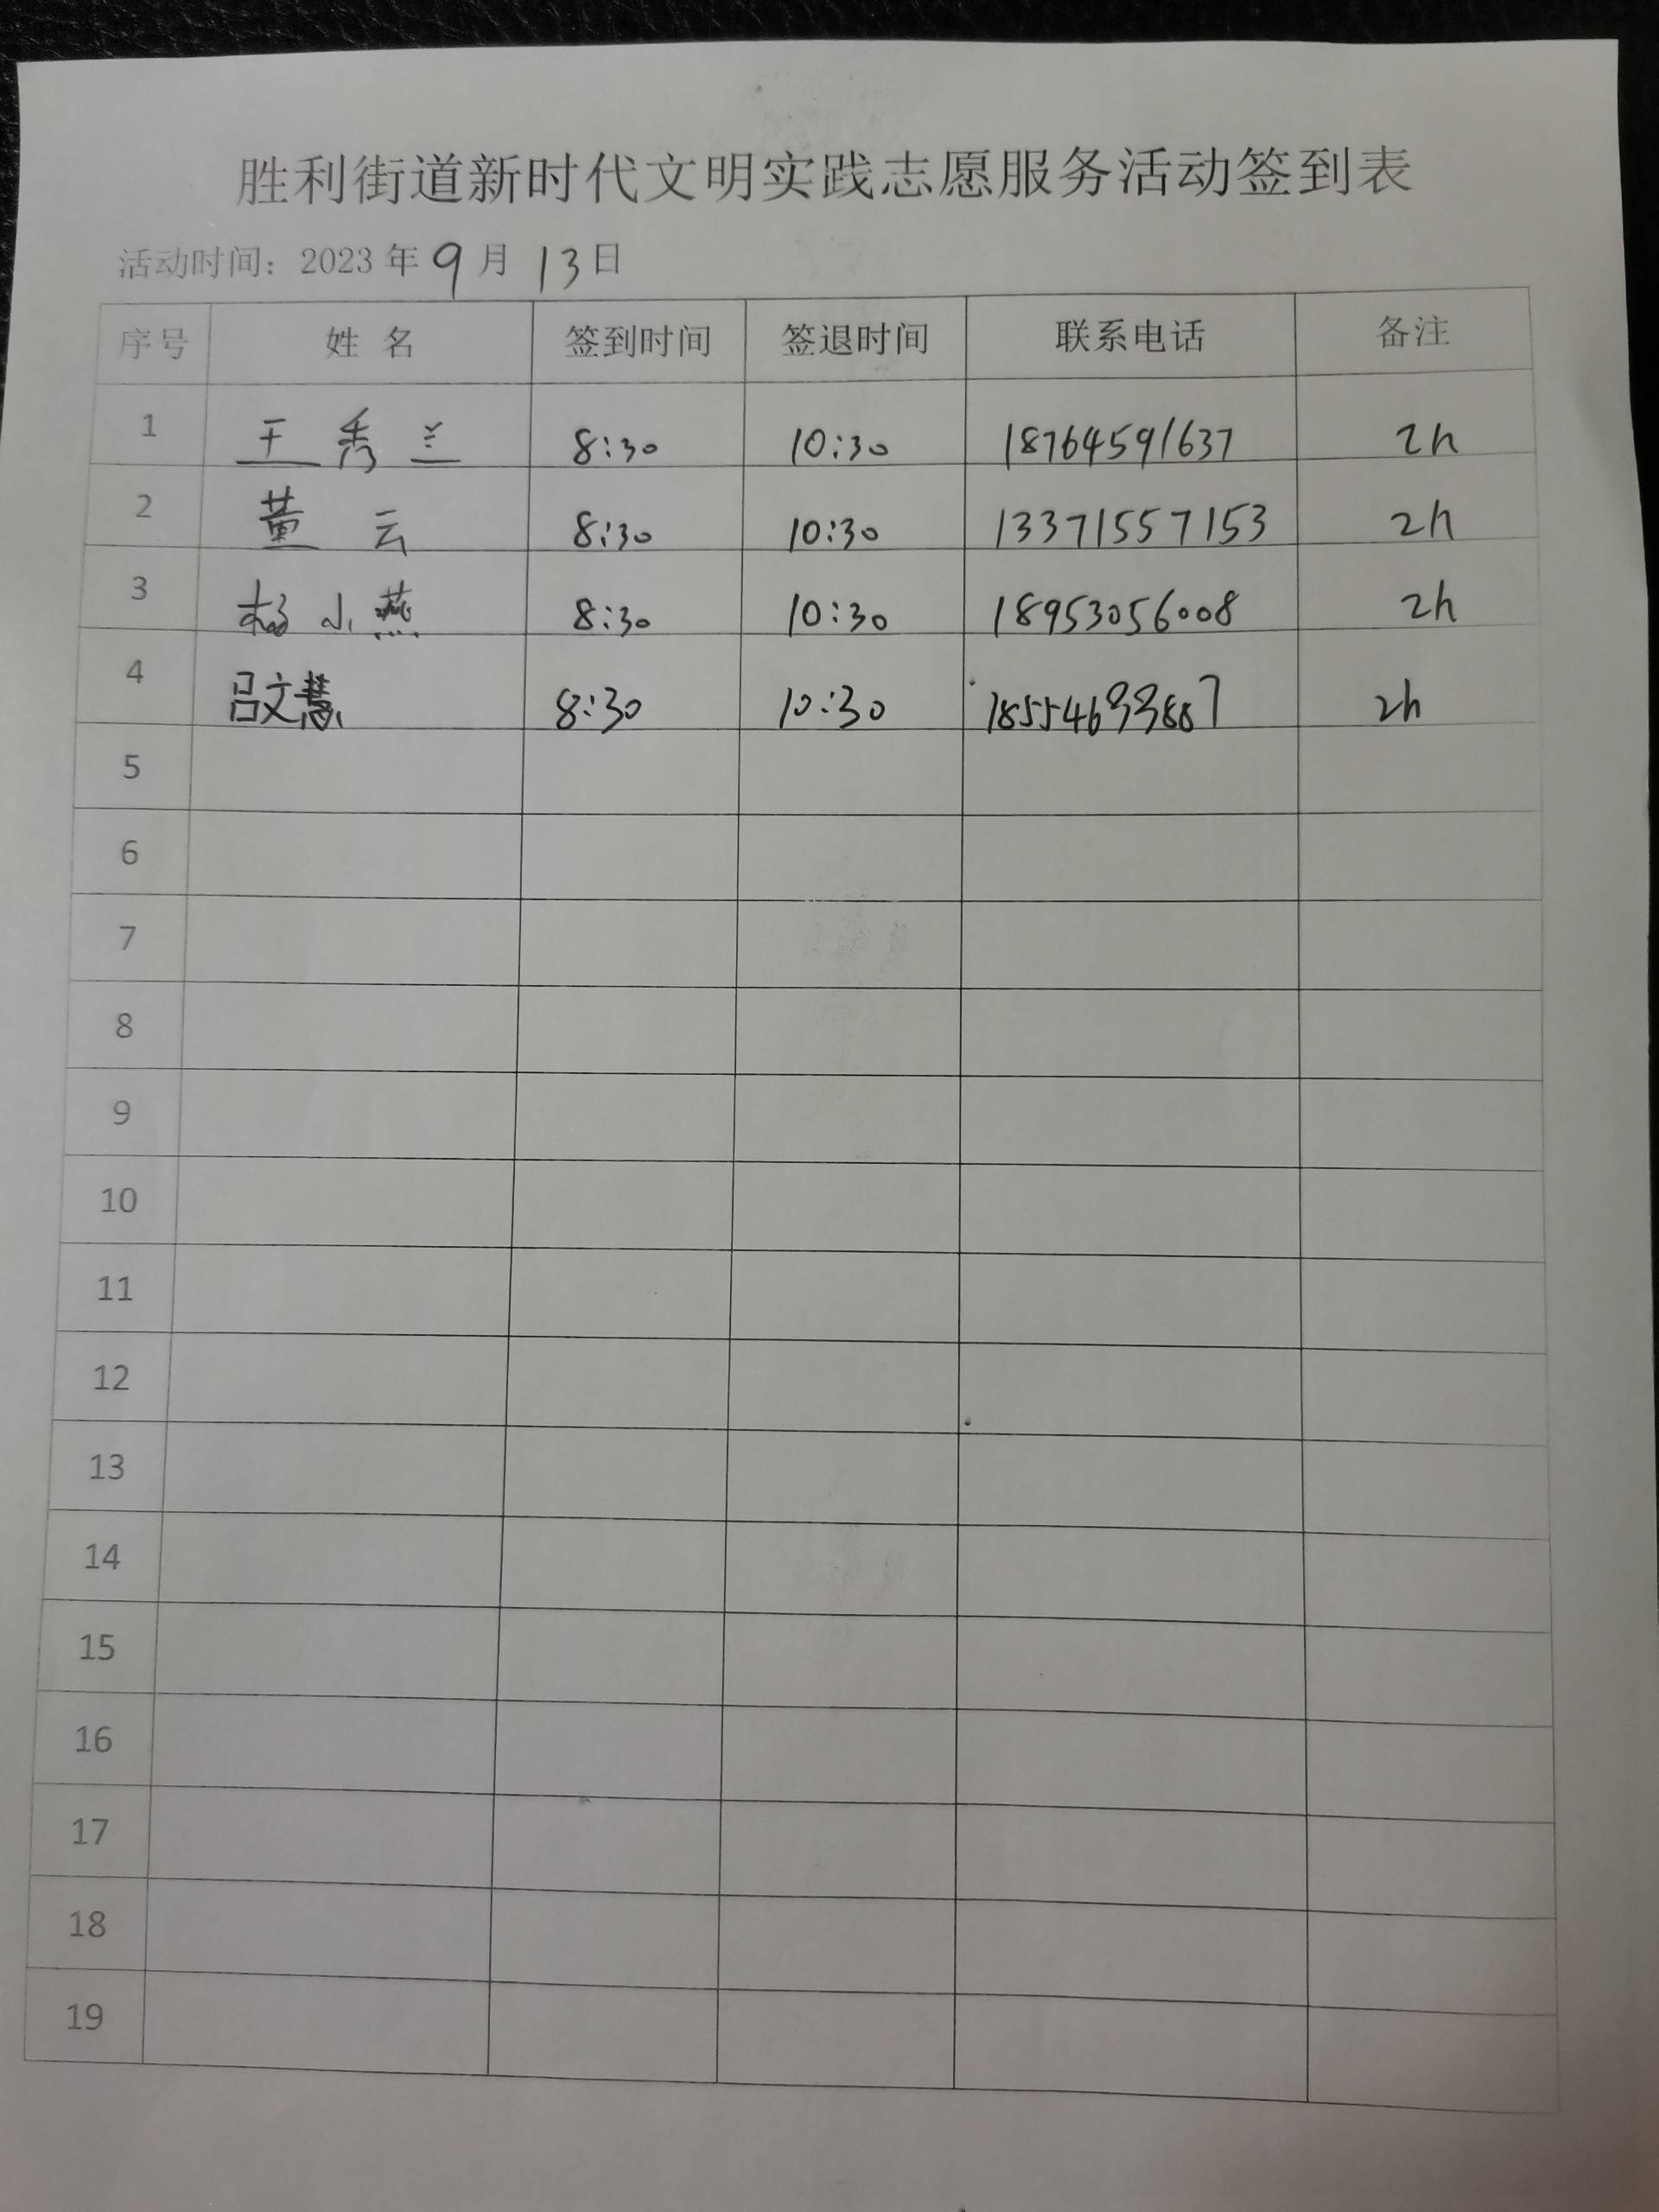 胜利街道新时代文明实践志愿服务活动签到表
活动时间：2023年9月13日
序号 姓名 签到时间 签退时间 联系电话 备注
1 王秀兰 8:30 10:30 18764591637 2h
2 董云 8:30 10:30 13371557153 2h
3 杨小燕 8:30 10:30 18953056008 2h
4 吕文慧 8:30 10:30 18554699887 2h
5
6
7
8
9
10
11
12
13
14
15
16
17
18
19